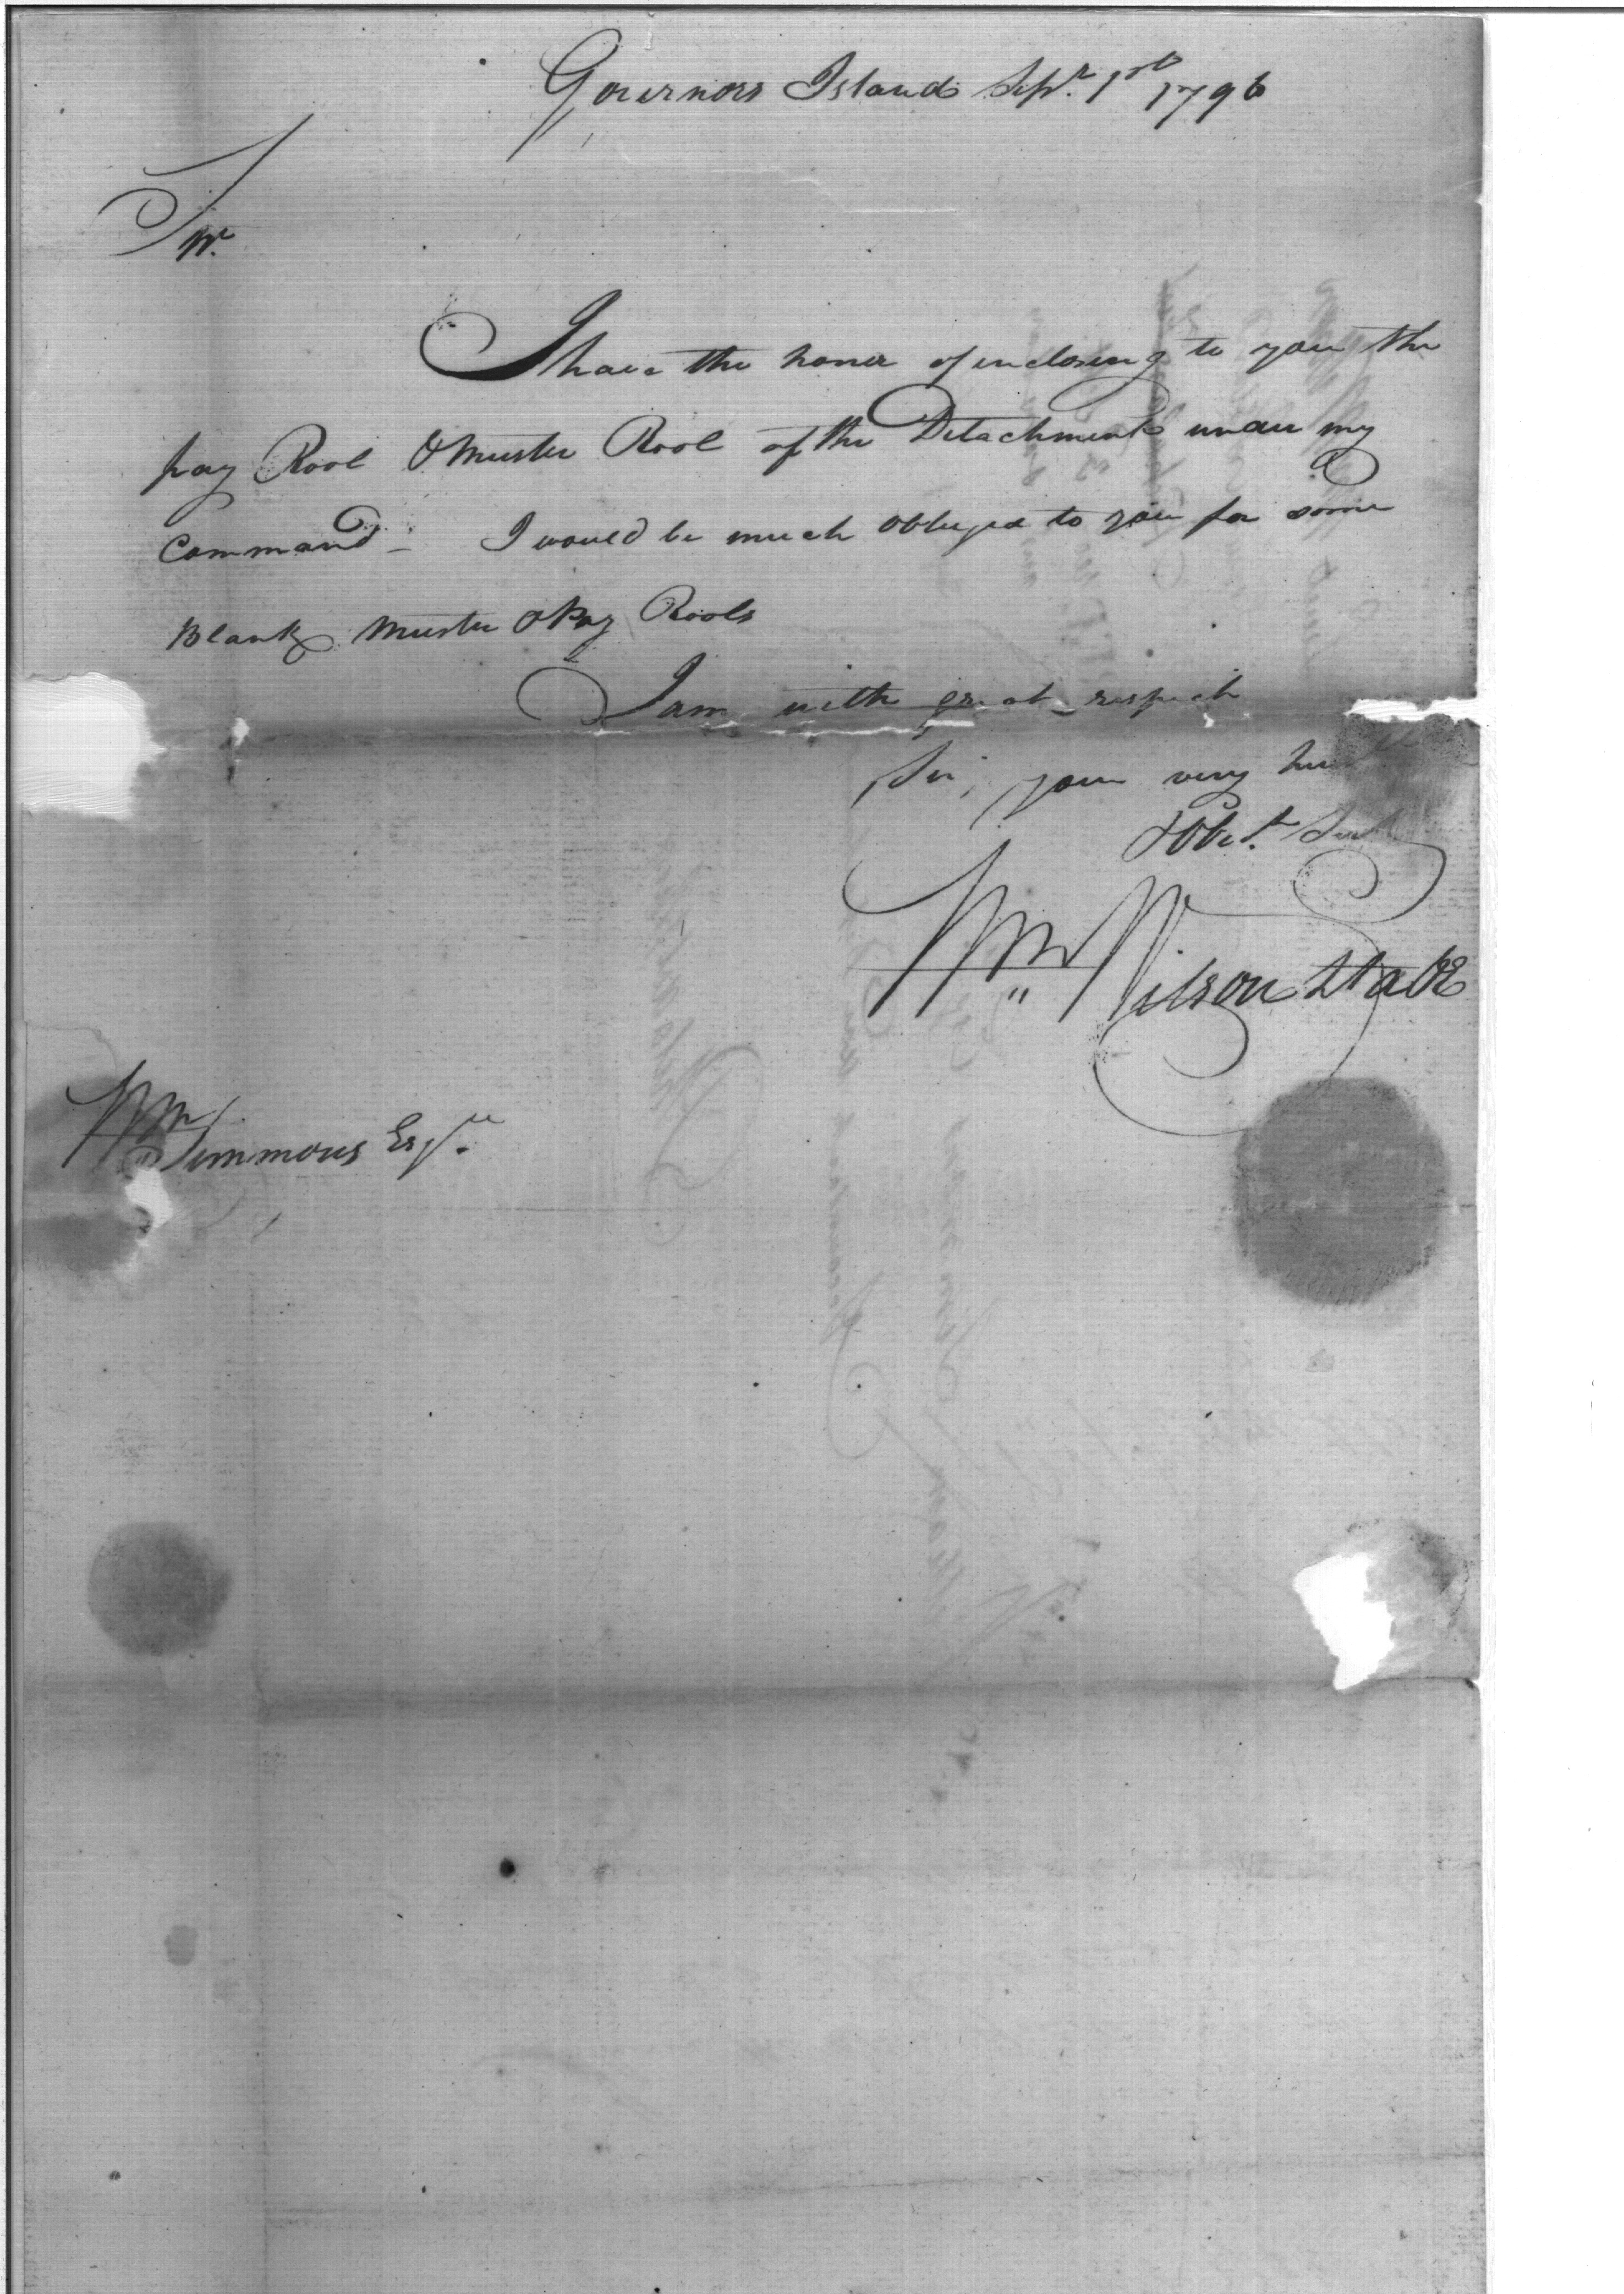 Governors Island Sepr. 1st 1796
Sir.
I have the honor of inclosing to you the
pay Rool & Muster Rool of the Detachment under my
Command - I would be much obliged to you for some
Blank Muster & Pay Rools
I am with great respect
Sir, your very
& Obt.
Wm Wilson
Wm Simmons Esqr.